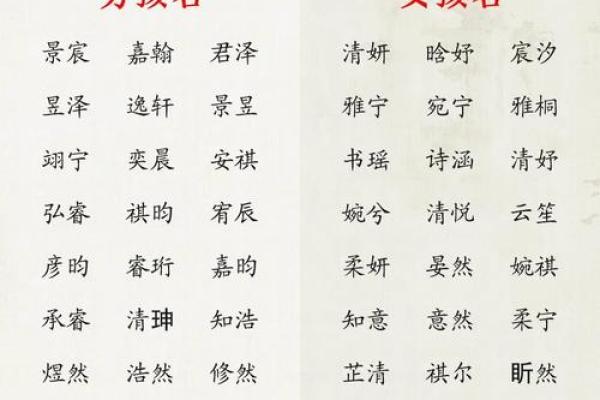 男孩名
景宸 嘉翰 君泽
昱泽 逸轩 景昱
翊宁 奕晨 安祺
弘睿 祺昀 宥辰
彦昀 睿珩 嘉昀
承睿 清珅 知浩
煜然 浩然 修然
女孩名
清妍 晗妤 宸汐
雅宁 宛宁 雅桐
书瑶 诗涵 清妤
婉兮 清悦 云笙
柔妍 晏然 婉祺
知意 意然 柔宁
芷清 祺尔 昕然